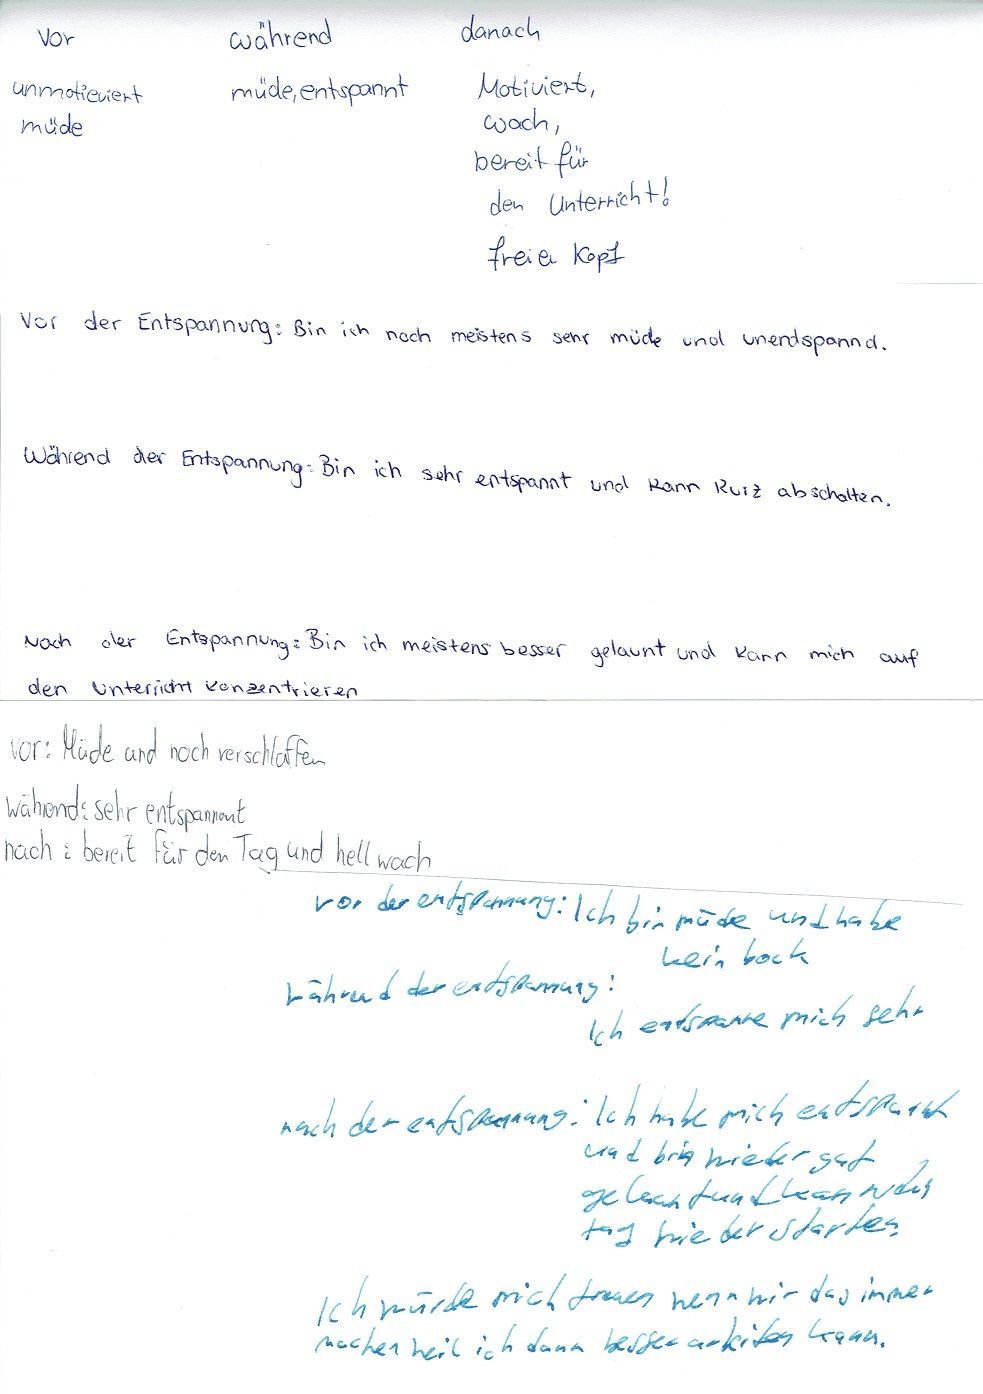 Vor während danach
unmotieviert müde, entspannt Motiviert,
müde wach,
bereit für
den Unterricht!
freier Kopf
Vor der Entspannung: Bin ich noch meistens sehr müde und unendspannd.
Während der Entspannung: Bin ich sehr entspannt und kann kurz abschalten.
Nach der Entspannung: Bin ich meistens besser gelaunt und kann mich auf
den Unterricht konzentrieren
vor: Müde und noch verschlaffen
während: sehr entspannt
nach: bereit für den Tag und hell wach
vor der entspannung: Ich bin müde und habe
kein bock
während der entspannung:
Ich entspanne mich sehr
nach der entspannung: Ich habe mich entspannt
und bin wieder gut
gelaunt und kann
tag wieder starten
Ich würde mich freuen wenn wir das immer
machen weil ich dann besser arbeiten kann.